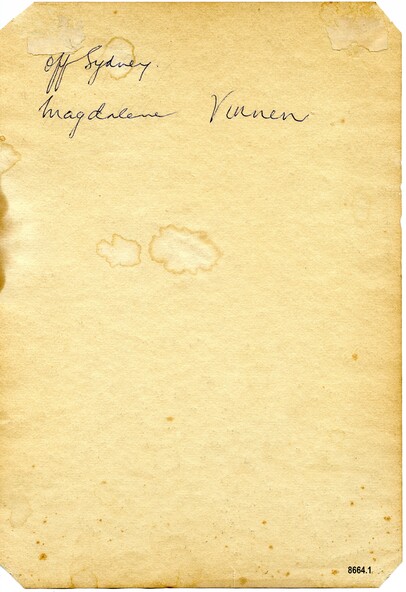 off Sydney.
Magdalene Vinnen
8664.1